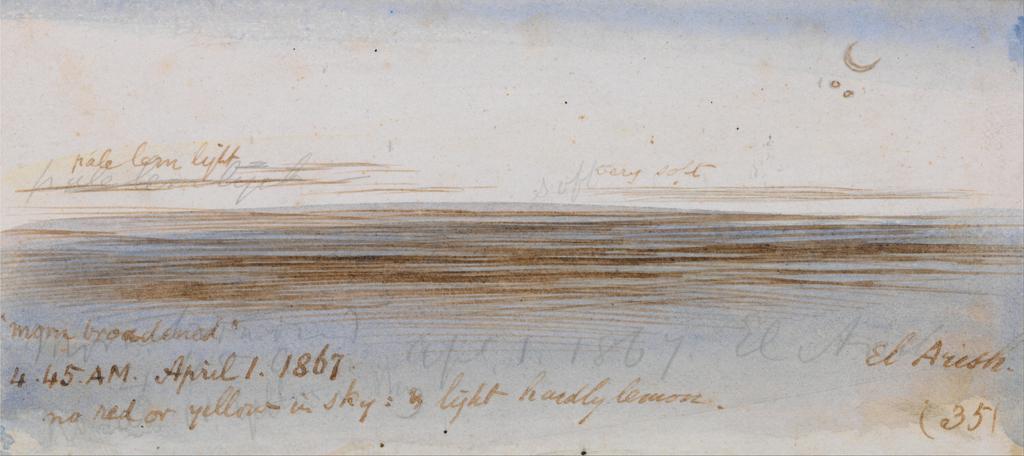 pale lem light
pale lem light
soft
very soft
"morn broadened"
4.45.AM. April 1. 1867.
April 1. 1867. El A
El Arish.
no red or yellow in sky: light hardly lemon.
(35)